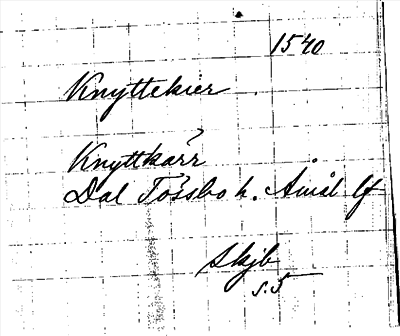 1540
Knyttekier
Knyttkärr
Dal Tössbo h. Åmål lf
Skjb
s. 5